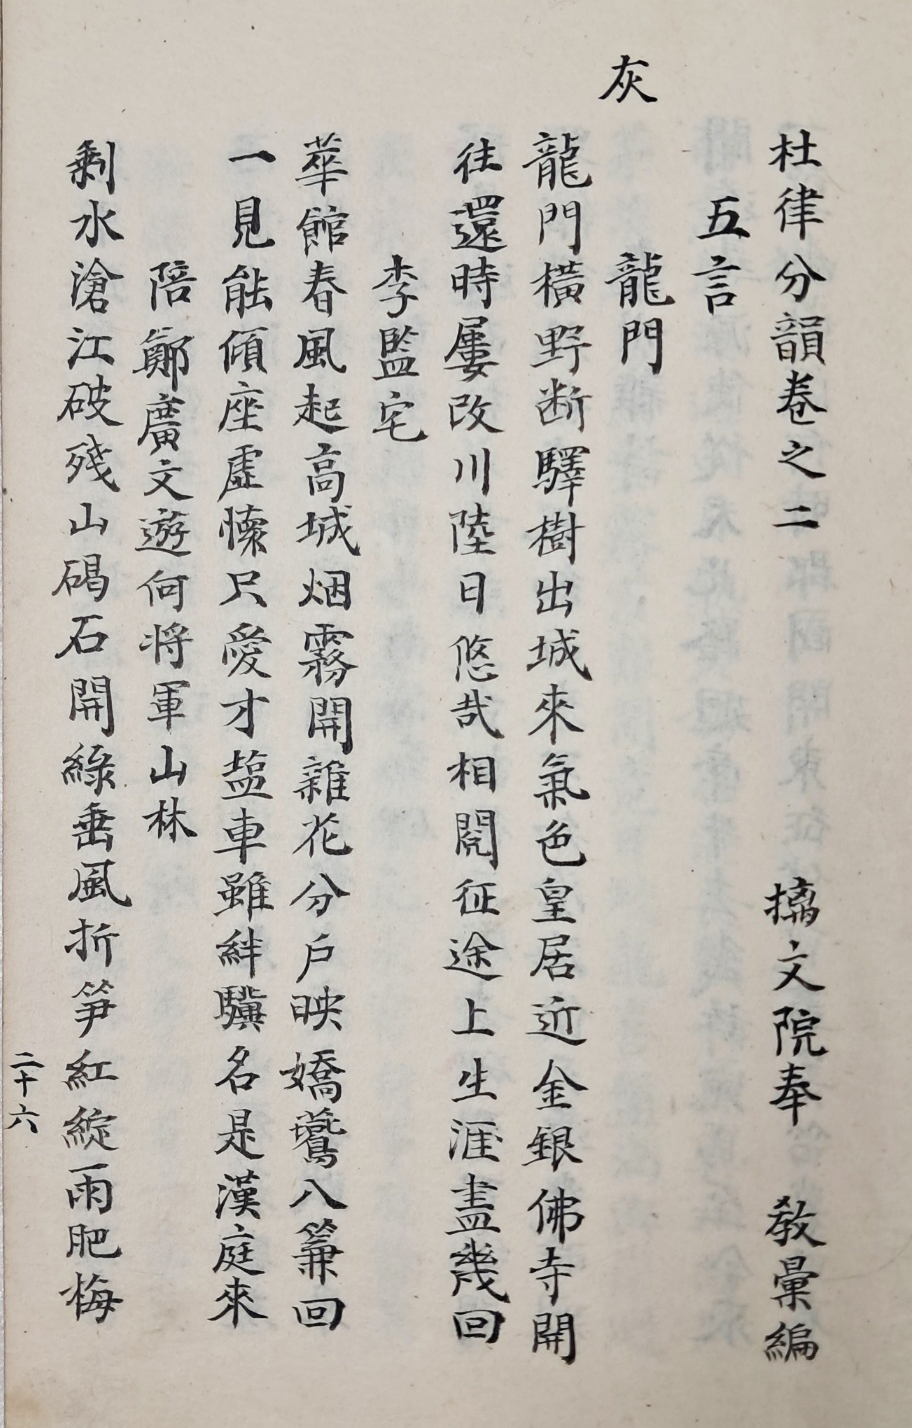 杜律分韻卷之二 摛文院奉 教彙編
五言
灰
龍門
龍門橫野断驛樹出城來氣色皇居近金銀佛寺開
往還時屢改川陸日悠哉相閱征途上生涯盡幾回
李監宅
華館春風起高城烟霧開雜花分戶映嬌鷰入簾回
一見能傾座虛懷只愛才盐車雖絆驥名是漢庭來
陪鄭廣文遊何将軍山林
剩水滄江破殘山碣石開綠垂風折笋紅綻雨肥梅
二十六